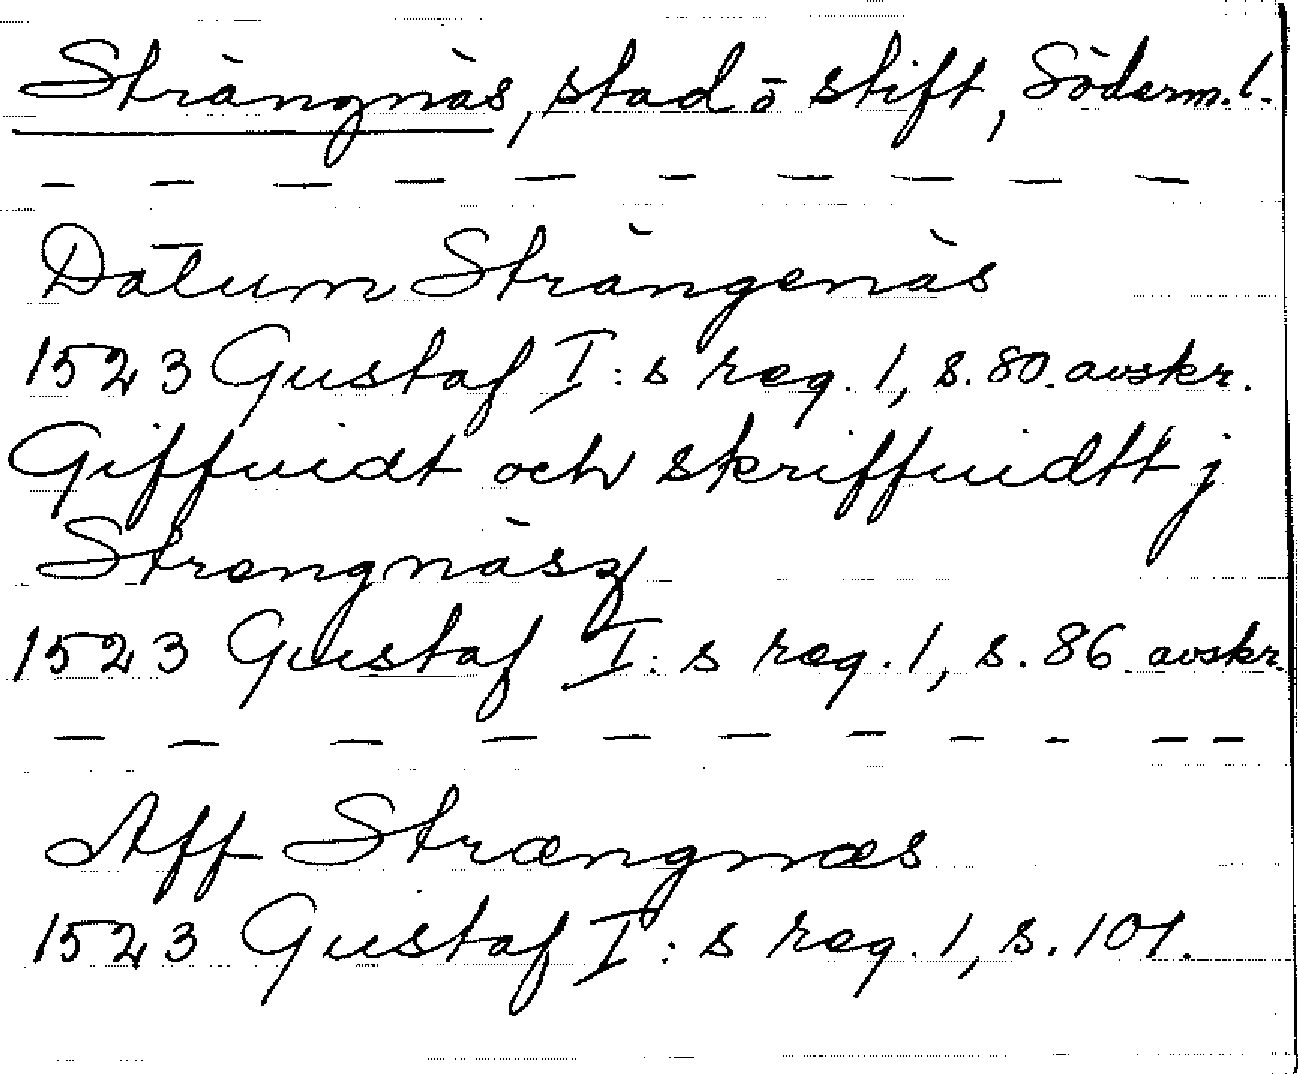 Strängnäs, stad o stift, Söderm. l.
— — — — — — — — — —
Datum Strängenäs
1523 Gustaf I:s reg. 1, s. 80. avskr.
Giffuidt och skriffuidtt j
Strengnäsz
1523 Gustaf I:s reg. 1, s. 86 avskr.
— — — — — — — — - — —
Aff Strængnæs
1523 Gustaf I:s reg. 1, s. 101.